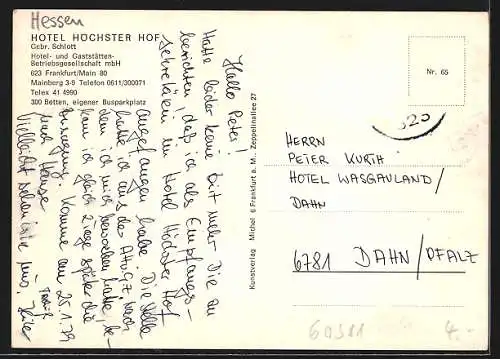 Hessen
HOTEL HÖCHSTER HOF
Gebr. Schlott
Hotel- und Gaststätten-
Betriebsgesellschaft mbH
623 Frankfurt/Main 80
Mainberg 3-9 Telefon 0611/300071
Telex 41 4990
300 Betten, eigener Busparkplatz
Hallo Peter!
Hatte leider keine Zeit mehr Dir zu
berichten, daß ich als Empfangs-
sekretärin im Hotel Höchster Hof
angefangen habe. Die Stelle
hatte ich aus der Ahgz. Nach
dem ich mich beworben habe, be-
kam ich gleich 2 Tage später die
Zusagung. Komme am 25.1.79
nach Hause.
Vielleicht sehen wir
uns,
Kunstverlag Michel 6 Frankfurt a. M. Zeppelinallee 27
Nr. 65
320
HERRN
PETER KURTH
HOTEL WASGAULAND/
DAHN
6781 DAHN/PFALZ
60381
4.-